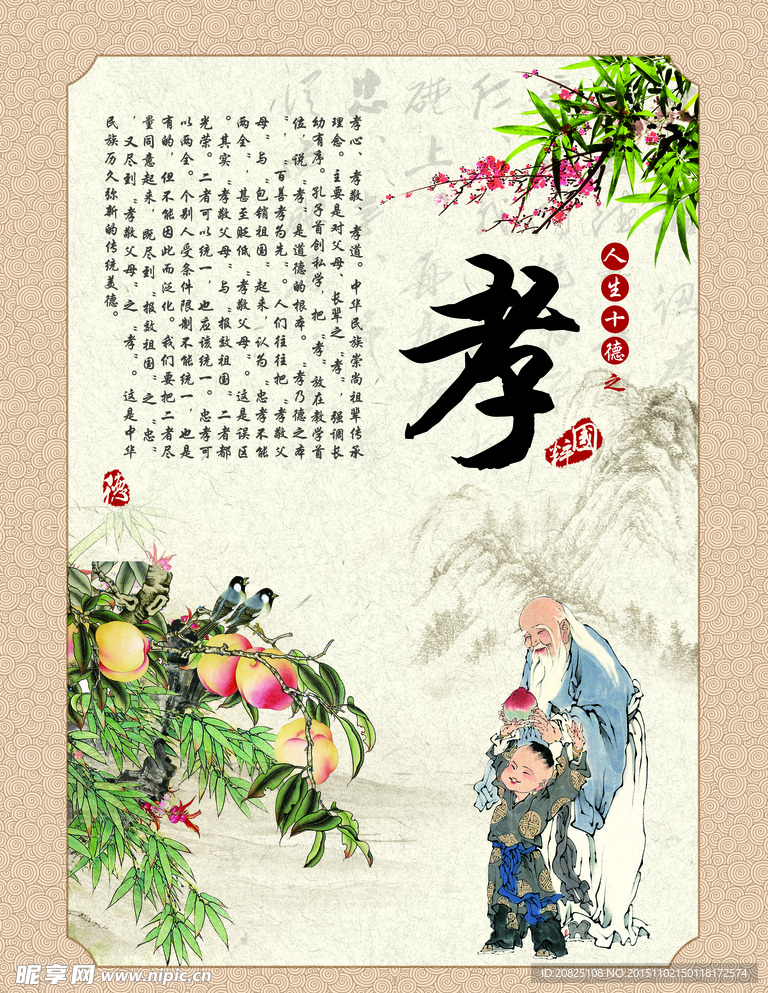 人生十德之
孝
国粹
孝心、孝敬、孝道。中华民族崇尚祖辈传承
理念。主要是对父母、长辈之“孝”，强调长
幼有序。孔子首创私学，把“孝”放在教学首
位，说“孝”是道德的根本。“孝乃德之本
”，“百善孝为先”。人们往往把“孝敬父
母”与“包销祖国”起来，认为“忠孝不能
两全”，甚至贬低“孝敬父母”。这是误区
。其实“孝敬父母”与“报效祖国”二者都
光荣。二者可以统一，也应该统一。忠孝可
以两全。个别人受条件限制不能统一，也是
有的，但不能因此而泛化。我们要把二者尽
量同意起来，既尽到“报效祖国”之“忠”
，又尽到“孝敬父母”之“孝”。这是中华
民族历久弥新的传统美德。
德
昵享网 www.nipic.cn
ID:20825108 NO:20151102150118172574